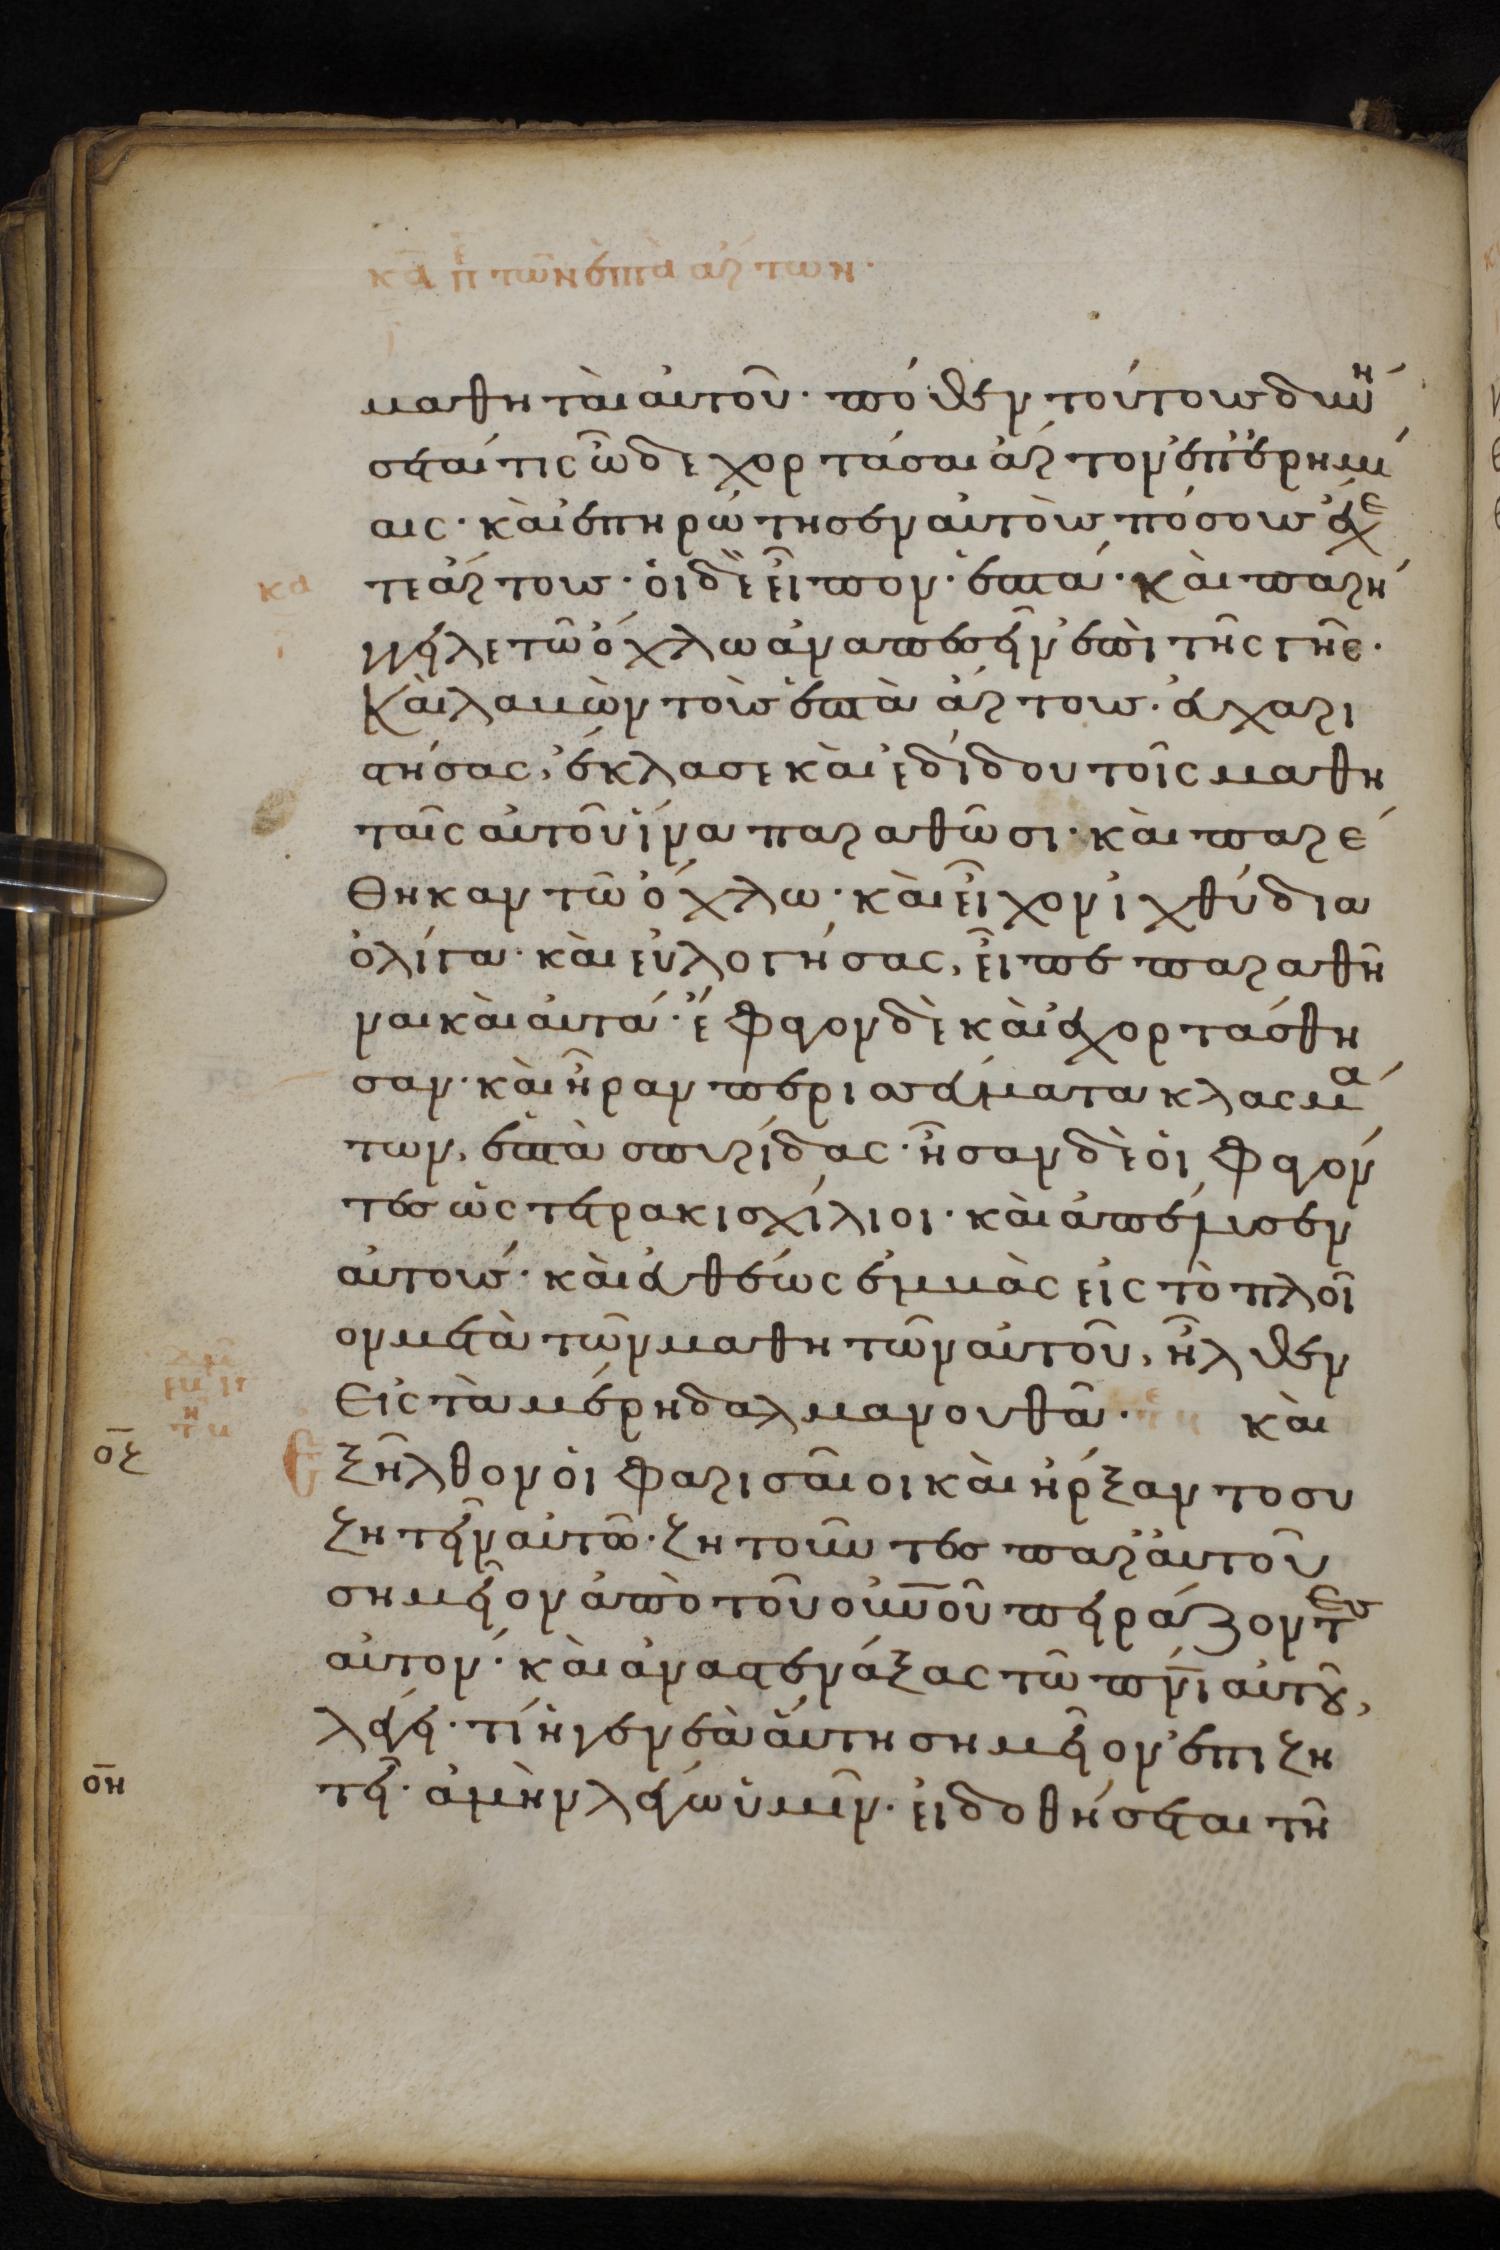 κα περὶ τῶν ἑπτὰ ἄρτων·
μαθηταὶ αὐτοῦ· πόθεν τούτους δυνή
σεταί τις ὧδε χορτάσαι ἄρτον ἐπ' ἐρημί
αις· καὶ ἐπηρώτησεν αὐτοὺς πόσους ἔχε
τε ἄρτους· οἱ δὲ εἶπον· ἑπτά· καὶ παρή
κα
γγειλε τῶ ὄχλω ἀναπεσεῖν ἐπὶ τῆς γῆς·
Καὶ λαβὼν τοὺς ἑπτὰ ἄρτους· εὐχαρι
στήσας, ἔκλασε καὶ ἐδίδου τοῖς μαθη
ταῖς αὐτοῦ ἵνα παραθῶσι· καὶ παρέ
θηκαν τῶ ὄχλω· καὶ εἶχον ἰχθύδια
ὀλίγα· καὶ εὐλογήσας, εἶπε παραθῆ
ναι καὶ αὐτά· ἔφαγον δὲ καὶ ἐχορτάσθη
σαν· καὶ ἦραν περισσεύματα κλασμά
των, ἑπτὰ σπυρίδας· ἦσαν δὲ οἱ φαγόν
τες ὡς τετρακισχίλιοι· καὶ ἀπέλυσεν
αὐτούς· καὶ εὐθέως ἐμβὰς εἰς τὸ πλοῖ
ον μετὰ τῶν μαθητῶν αὐτοῦ, ἦλθεν
Εἰς τὰ μέρη δαλμανουθᾶ· καὶ
οζ
ἐξῆλθον οἱ φαρισαῖοι καὶ ἤρξαντο συ
ζητεῖν αὐτῶ· ζητοῦντες παρ' αὐτοῦ
σημεῖον ἀπὸ τοῦ οὐνοῦ πειράζοντες
αὐτόν· καὶ ἀναστενάξας τῶ πνι αὐτοῦ,
λέγει· τί ἡ γενεὰ αὕτη σημεῖον ἐπιζη
οη
τεῖ· ἀμὴν λέγω ὑμῖν· εἰ δοθήσεται τῆ